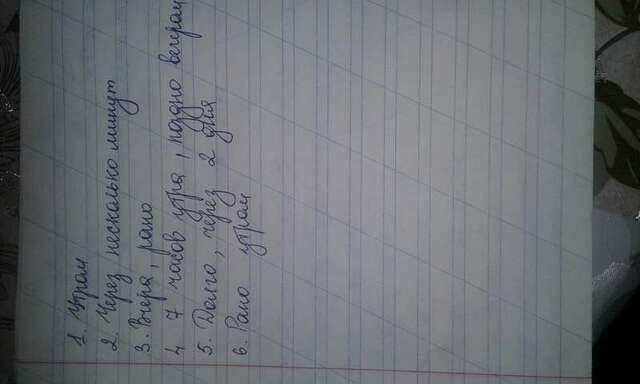 1. Утром
2. Через несколько минут
3. Вчера, рано
4 7 часов утра, поздно вечером
5. Долго, через 2 дня
6. Рано утром